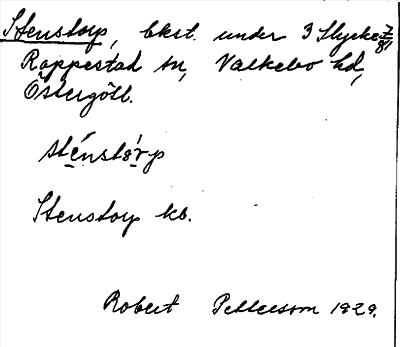 Stenstorp, bkst. under 3 Stycket
Rappestad sn, Valkebo hd,
Östergötl.
sténstòrp
Stenstorp kb.
Robert Pettersson 1929.